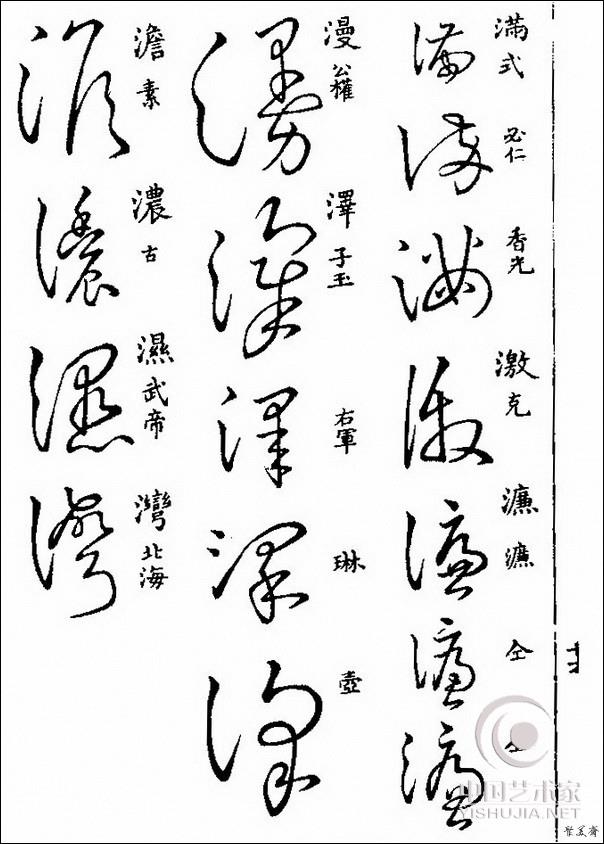 滿 式
必仁
香光
激 克
濂 濂
仝
仝
漫 公權
澤 子玉
右軍
琳
壺
澹 素
濃 古
濕 武帝
灣 北海
中国艺术家
YISHUJIA.NET